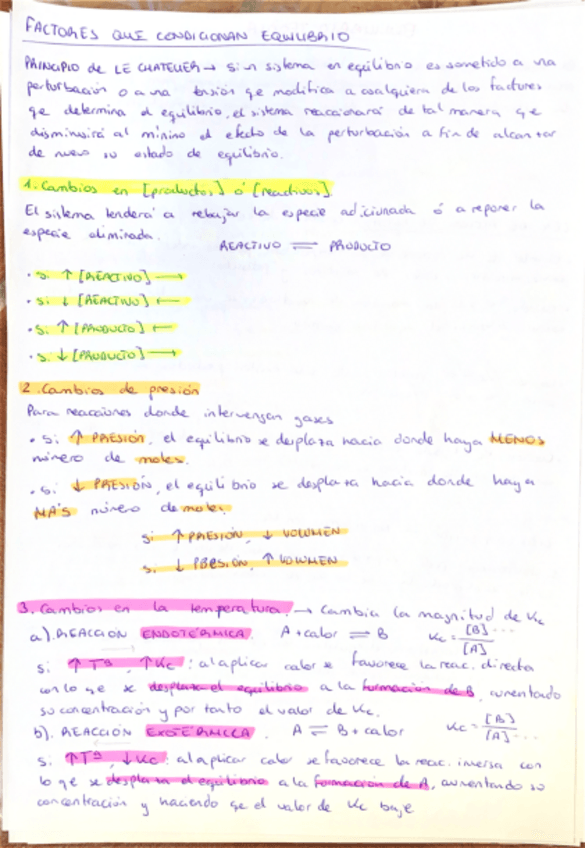 FACTORES QUE CONDICIONAN EQUILIBRIO
PRINCIPIO de LE CHATELIER → Si un sistema en equilibrio es sometido a una
perturbación o a una tensión qe modifica a cualquiera de los factores
qe determina el equilibrio, el sistema reaccionará de tal manera qe
disminuirá al mínimo el efecto de la perturbación a fin de alcanzar
de nuevo su estado de equilibrio.
1. Cambios en [productos] ó [reactivos]
El sistema tenderá a rebajar la especie adicionada ó a reponer la
especie eliminada.
REACTIVO ⇌ PRODUCTO
• Si ↑ [REACTIVO] →
• Si ↓ [REACTIVO] ←
• Si ↑ [PRODUCTO] ←
• Si ↓ [PRODUCTO] →
2. Cambios de presión
Para reacciones donde intervengan gases
• Si ↑ PRESIÓN, el equilibrio se desplaza hacia donde haya MENOS
número de moles.
• Si ↓ PRESIÓN, el equilibrio se desplaza hacia donde haya
MÁS número de moles
Si ↑ PRESIÓN, ↓ VOLUMEN
Si ↓ PRESIÓN, ↑ VOLUMEN
3. Cambios en la temperatura. → Cambia la magnitud de Kc
a). REACCIÓN ENDOTÉRMICA. A + calor ⇌ B Kc = [B]... / [A]
Si ↑ Tª, ↑ Kc : al aplicar calor se favorece la reac. directa
con lo qe se desplaza el equilibrio a la formación de B, aumentando
su concentración y por tanto el valor de Kc.
b). REACCIÓN EXOTÉRMICA. A ⇌ B + calor Kc = [B] / [A]...
Si ↑ Tª, ↓ Kc : al aplicar calor se favorece la reac. inversa con
lo qe se desplaza el equilibrio a la formación de A, aumentando su
concentración y haciendo qe el valor de Kc baje